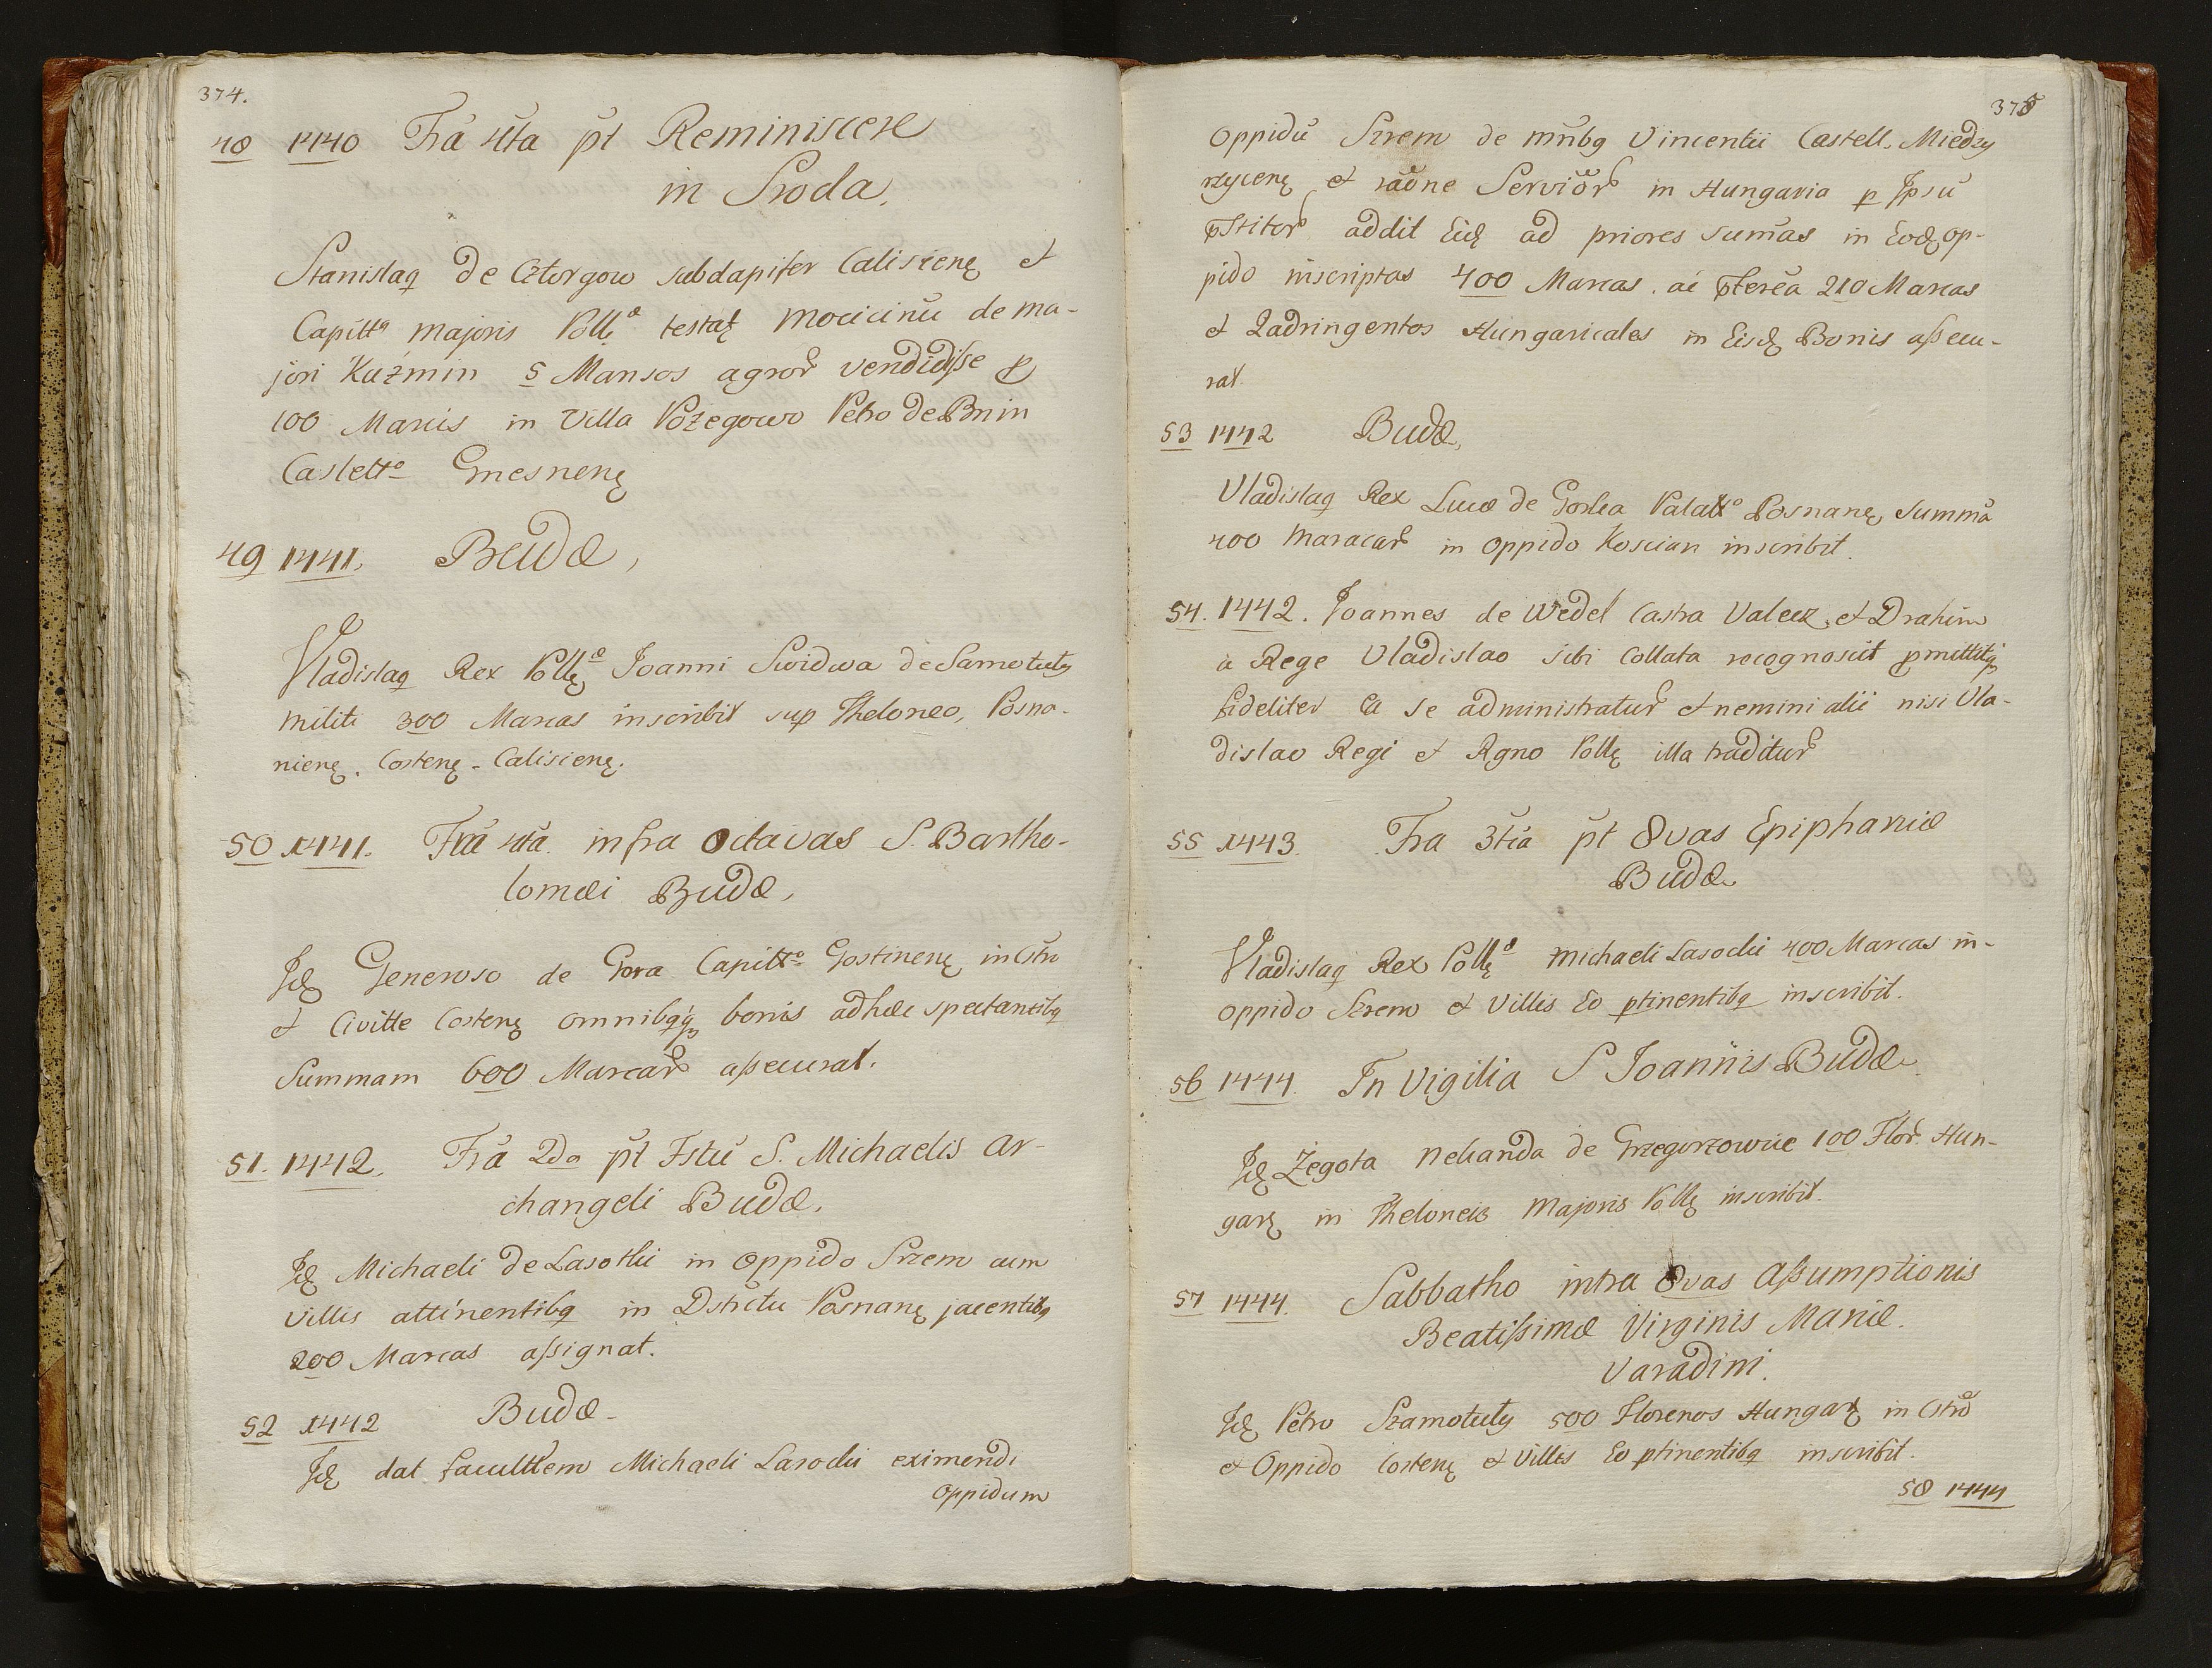 374.
48 1440 Fra 4ta pt Reminiscere
in Sroda,
Stanislaq de Ostorgow subdapifer Calisienę et
Capitto majoris Pollę testatz Mocicinu de ma-
jori Kuźmin 5 Mansos agror vendidisse p
100 Marcis in Villa Pożegowo Petro de Bnin
Castelto Gnesnenę
49 1441. Budæ,
Vladislaq Rex Pollę Joanni Swidwa de Samotuly
militi 300 Marcas inscribit sup Theloneo, Posna-
nienę. Costenę - Calisienę.
50 1441. Fra 4ta infra Octavas S. Bartho-
lomæi Budæ,
Idę Generoso de Gora Capitto Gostinenę in Cstro
et Civitte Costenę omnibqq bonis adhæc spectantibq
Summam 600 Marcar assecurat.
51. 1442. Fra 2da pt Fstu S. Michaelis Ar-
changeli Budæ.
Idę Michaeli de Lasothi in Oppido Srzem cum
villis attinentibq in Dstrictu Posnanę jacentibq
200 Marcas assignat.
52 1442 Budæ
Idę dat facultem Michaeli Lasochi eximendi
Oppidum
375
Oppidu Srzem de mnbq Vincentii Castell. Miedzy
rzycenę et raone Servior in Hungaria p Ipsu
pstitor addit Eidę ad priores sumas in Eodę op-
pido inscriptas 400 Marcas. ac pterea 210 Marcas
et Qadringentos Hungaricales in Eisdę Bonis assecu-
rat.
53 1442 Budæ,
Vladislaq Rex Lucæ de Gorka Palatto Posnanę summa
400 Maracar in Oppido Koscian inscribit.
54. 1442. Joannes de Wedel Castra Valecz et Drahim
a Rege Vladislao sibi Collata recognoscit pmittitq
fideliter Ea se administratur et nemini alii nisi Vla-
dislao Regi et Rgno Pollę illa traditur
55 1443. Fra 3tia pt 8vas Epiphaniæ
Budæ
Vladislaq Rex Pollę Michaeli Lasochi 400 Marcas in-
oppido Srzem et Villis Eo ptinentibq inscribit.
56 1444. In Vigilia S Joannis Budæ
Idę Żegota Nekanda de Grzegorzowice 100 Flor. Hun-
garę in Theloneis Majoris Pollę inscribit.
57 1444. Sabbatho intra 8vas Assumptionis
Beatissimæ Virginis Mariæ.
Varadini.
Idę Petro Szamotuly 500 Florenos Hungarę in Cstro
et Oppido Costenę et Villis Eo ptinentibq inscribit.
58 1444